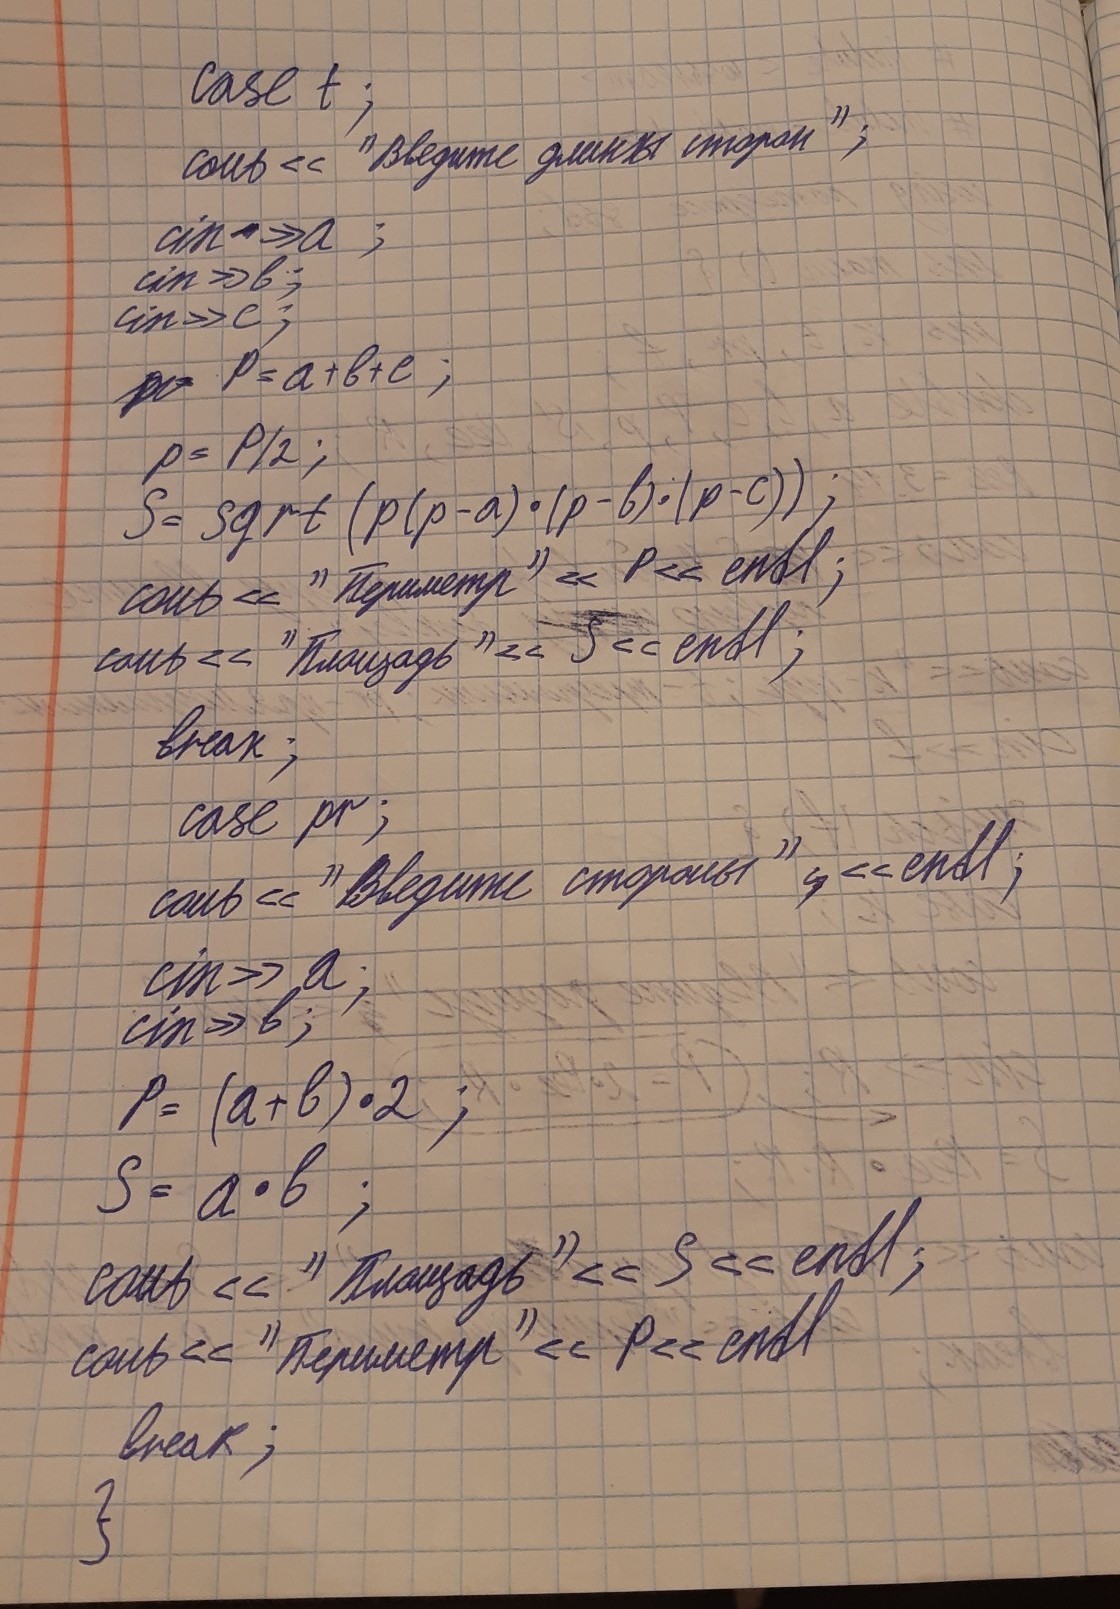 case t;
cout << "Введите длинны сторон";
cin >> a ;
cin >> b;
cin >> c;
P = a+b+c ;
p = P/2;
S = sqrt (p(p-a)·(p-b)·(p-c)) ;
cout << "Периметр" << P << endl;
cout << "Площадь" << S << endl;
break;
case pr;
cout << "Введите стороны" << endl;
cin >> a;
cin >> b;
P = (a+b)·2 ;
S = a·b ;
cout << "Площадь" << S << endl;
cout << "Периметр" << P << endl
break;
}